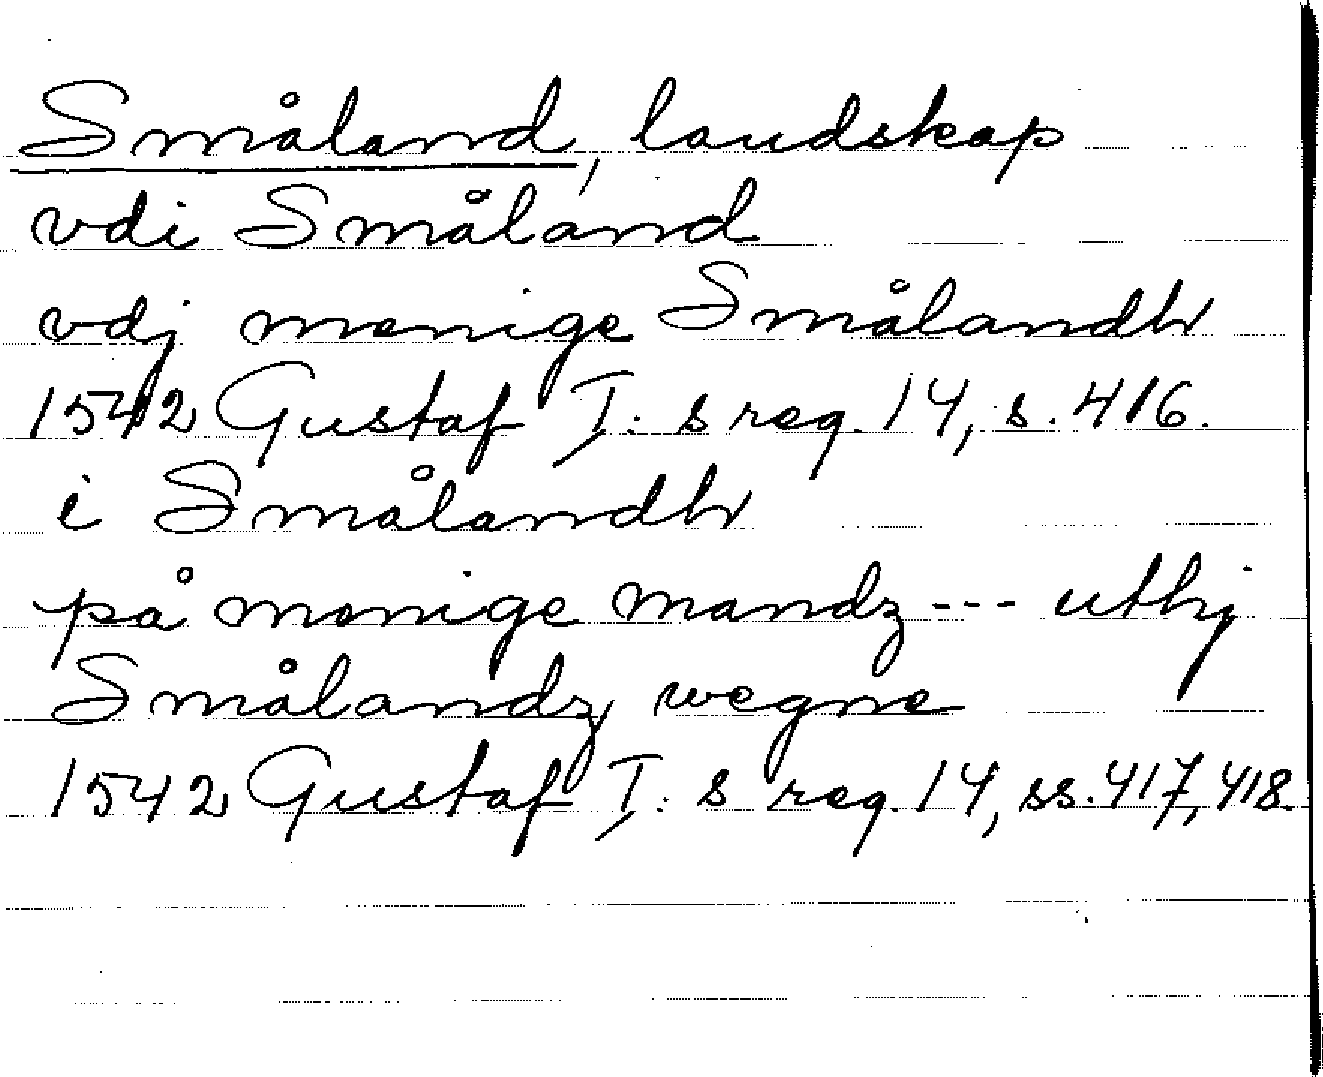 Småland, landskap
vdi Småland
vdj menige Smålandh
1542 Gustaf I: s reg. 14, s. 416.
i Smålandh
på menige mandz --- uthj
Smålandz wegne
1542 Gustaf I: s reg. 14, ss. 417, 418.